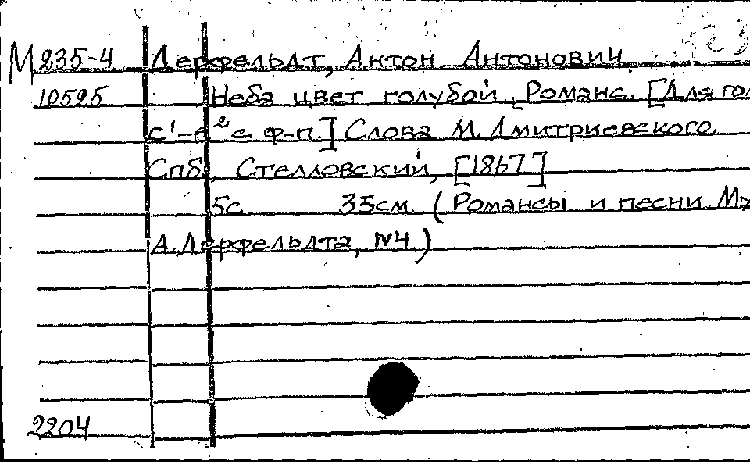 М 235-4 Дерфельдт, Антон Антонович
10595 Неба цвет голубой. Романс. [Для гол
с¹-е² с ф-п.] Слова М. Дмитриевского.
Спб, Стелловский, [1867]
5с. 35см. (Романсы и песни. Му
А. Дерфельдта, №4)
2204